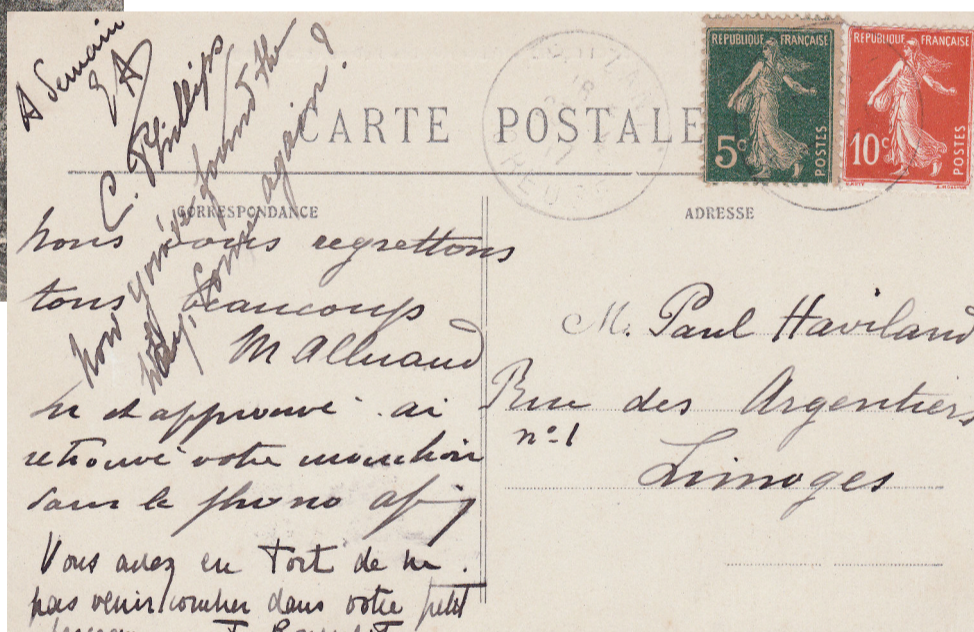 A demain
EA
C. Phillips
Now you've found the
way, come again!
CARTE POSTALE
RÉPUBLIQUE FRANÇAISE
5c
POSTES
RÉPUBLIQUE FRANÇAISE
10c
POSTES
CREUSE
CORRESPONDANCE
nous vous regrettons
tous beaucoup
M Alluaud
Lu et approuvé. ai
retrouvé votre mouchoir
dans le phono
Vous avez eu tort de ne
pas venir coucher dans votre petit
ADRESSE
M. Paul Haviland
Rue des Argentiers
nº 1
Limoges